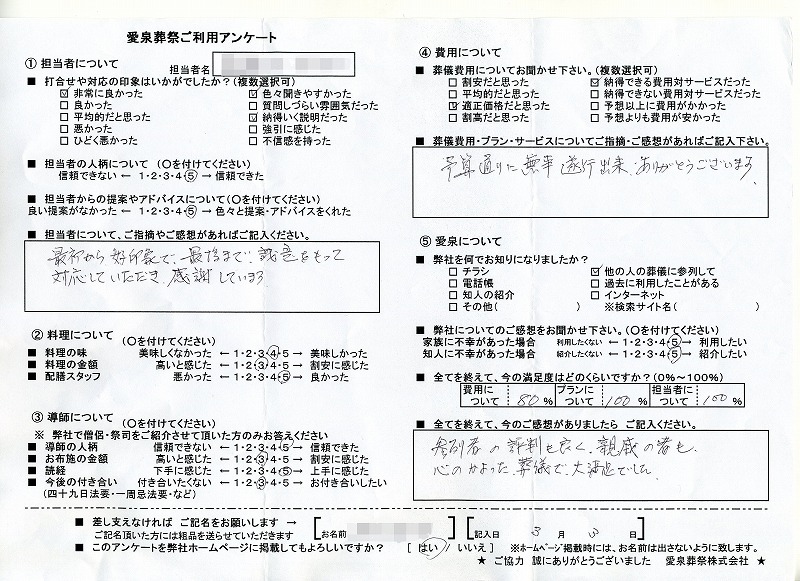 愛泉葬祭ご利用アンケート
① 担当者について
担当者名
■ 打合せや対応の印象はいかがでしたか?(複数選択可)
☑ 非常に良かった ☑ 色々聞きやすかった
□ 良かった □ 質問しづらい雰囲気だった
□ 平均的だと思った ☑ 納得いく説明だった
□ 悪かった □ 強引に感じた
□ ひどく悪かった □ 不信感を持った
■ 担当者の人柄について (○を付けてください)
信頼できない ← 1・2・3・4・⑤ → 信頼できた
■ 担当者からの提案やアドバイスについて(○を付けてください)
良い提案がなかった ← 1・2・3・4・⑤ → 色々と提案・アドバイスをくれた
■ 担当者について、ご指摘やご感想があればご記入ください。
最初から好印象で、最後まで、誠意をもって
対応していただき、感謝しています
② 料理について (○を付けてください)
■ 料理の味 美味しくなかった ← 1・2・3・④・5 → 美味しかった
■ 料理の金額 高いと感じた ← 1・2・③・4・5 → 割安に感じた
■ 配膳スタッフ 悪かった ← 1・2・3・4・⑤ → 良かった
③ 導師について (○を付けてください)
※ 弊社で僧侶・祭司をご紹介させて頂いた方のみお答えください
■ 導師の人柄 信頼できない ← 1・2・3・4・⑤ → 信頼できた
■ お布施の金額 高いと感じた ← 1・2・③・4・5 → 割安と感じた
■ 読経 下手に感じた ← 1・2・3・4・⑤ → 上手に感じた
■ 今後の付き合い 付き合いたくない ← 1・2・③・4・5 → お付き合いしたい
(四十九日法要・一周忌法要・など)
④ 費用について
■ 葬儀費用についてお聞かせ下さい。(複数選択可)
□ 割安だと思った ☑ 納得できる費用対サービスだった
□ 平均的だと思った □ 納得できない費用対サービスだった
☑ 適正価格だと思った □ 予想以上に費用がかかった
□ 割高だと思った □ 予想よりも費用が安かった
■ 葬儀費用・プラン・サービスについてご指摘・ご感想があればご記入下さい。
予算通りに無事遂行出来、ありがとうございます
⑤ 愛泉について
■ 弊社を何でお知りになりましたか?
□ チラシ ☑ 他の人の葬儀に参列して
□ 電話帳 □ 過去に利用したことがある
□ 知人の紹介 □ インターネット
□ その他( ) ※検索サイト名( )
■ 弊社についてのご感想をお聞かせ下さい。(○を付けてください)
家族に不幸があった場合 利用したくない ← 1・2・3・4・⑤ → 利用したい
知人に不幸があった場合 紹介したくない ← 1・2・3・4・⑤ → 紹介したい
■ 全てを終えて、今の満足度はどのくらいですか?(0%~100%)
費用について 80 % プランについて 100 % 担当者について 100 %
■ 全てを終えて、今のご感想がありましたら ご記入ください。
参列者の評判も良く、親戚の者も、
心のかよった葬儀で、大満足でした
■ 差し支えなければ ご記名をお願いします → [お名前 ] [記入日 3 月 3 日]
ご記名頂いた方には粗品を送らせていただきます
■ このアンケートを弊社ホームページに掲載してもよろしいですか? [ はい / いいえ ] ※ホームページ掲載時には、お名前は出さないように致します。
★ ご協力 誠にありがとうございました 愛泉葬祭株式会社 ★